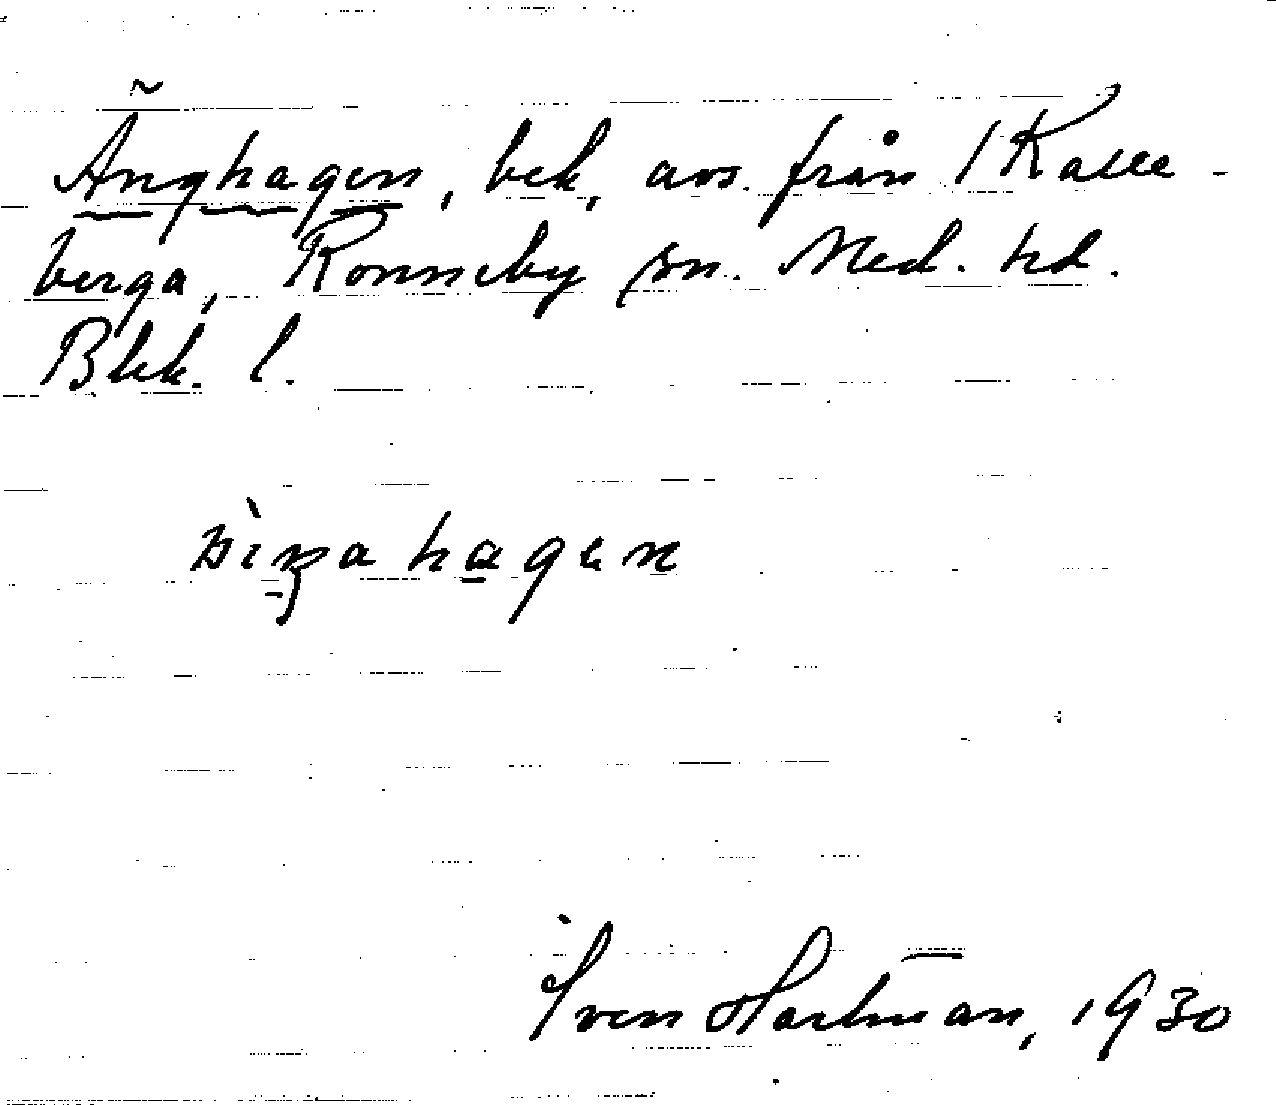 Änghagen, bek, avs. från 1 Kalle-
berga, Ronneby sn. Med. hd.
Blek. l.
Sven Hartman, 1930